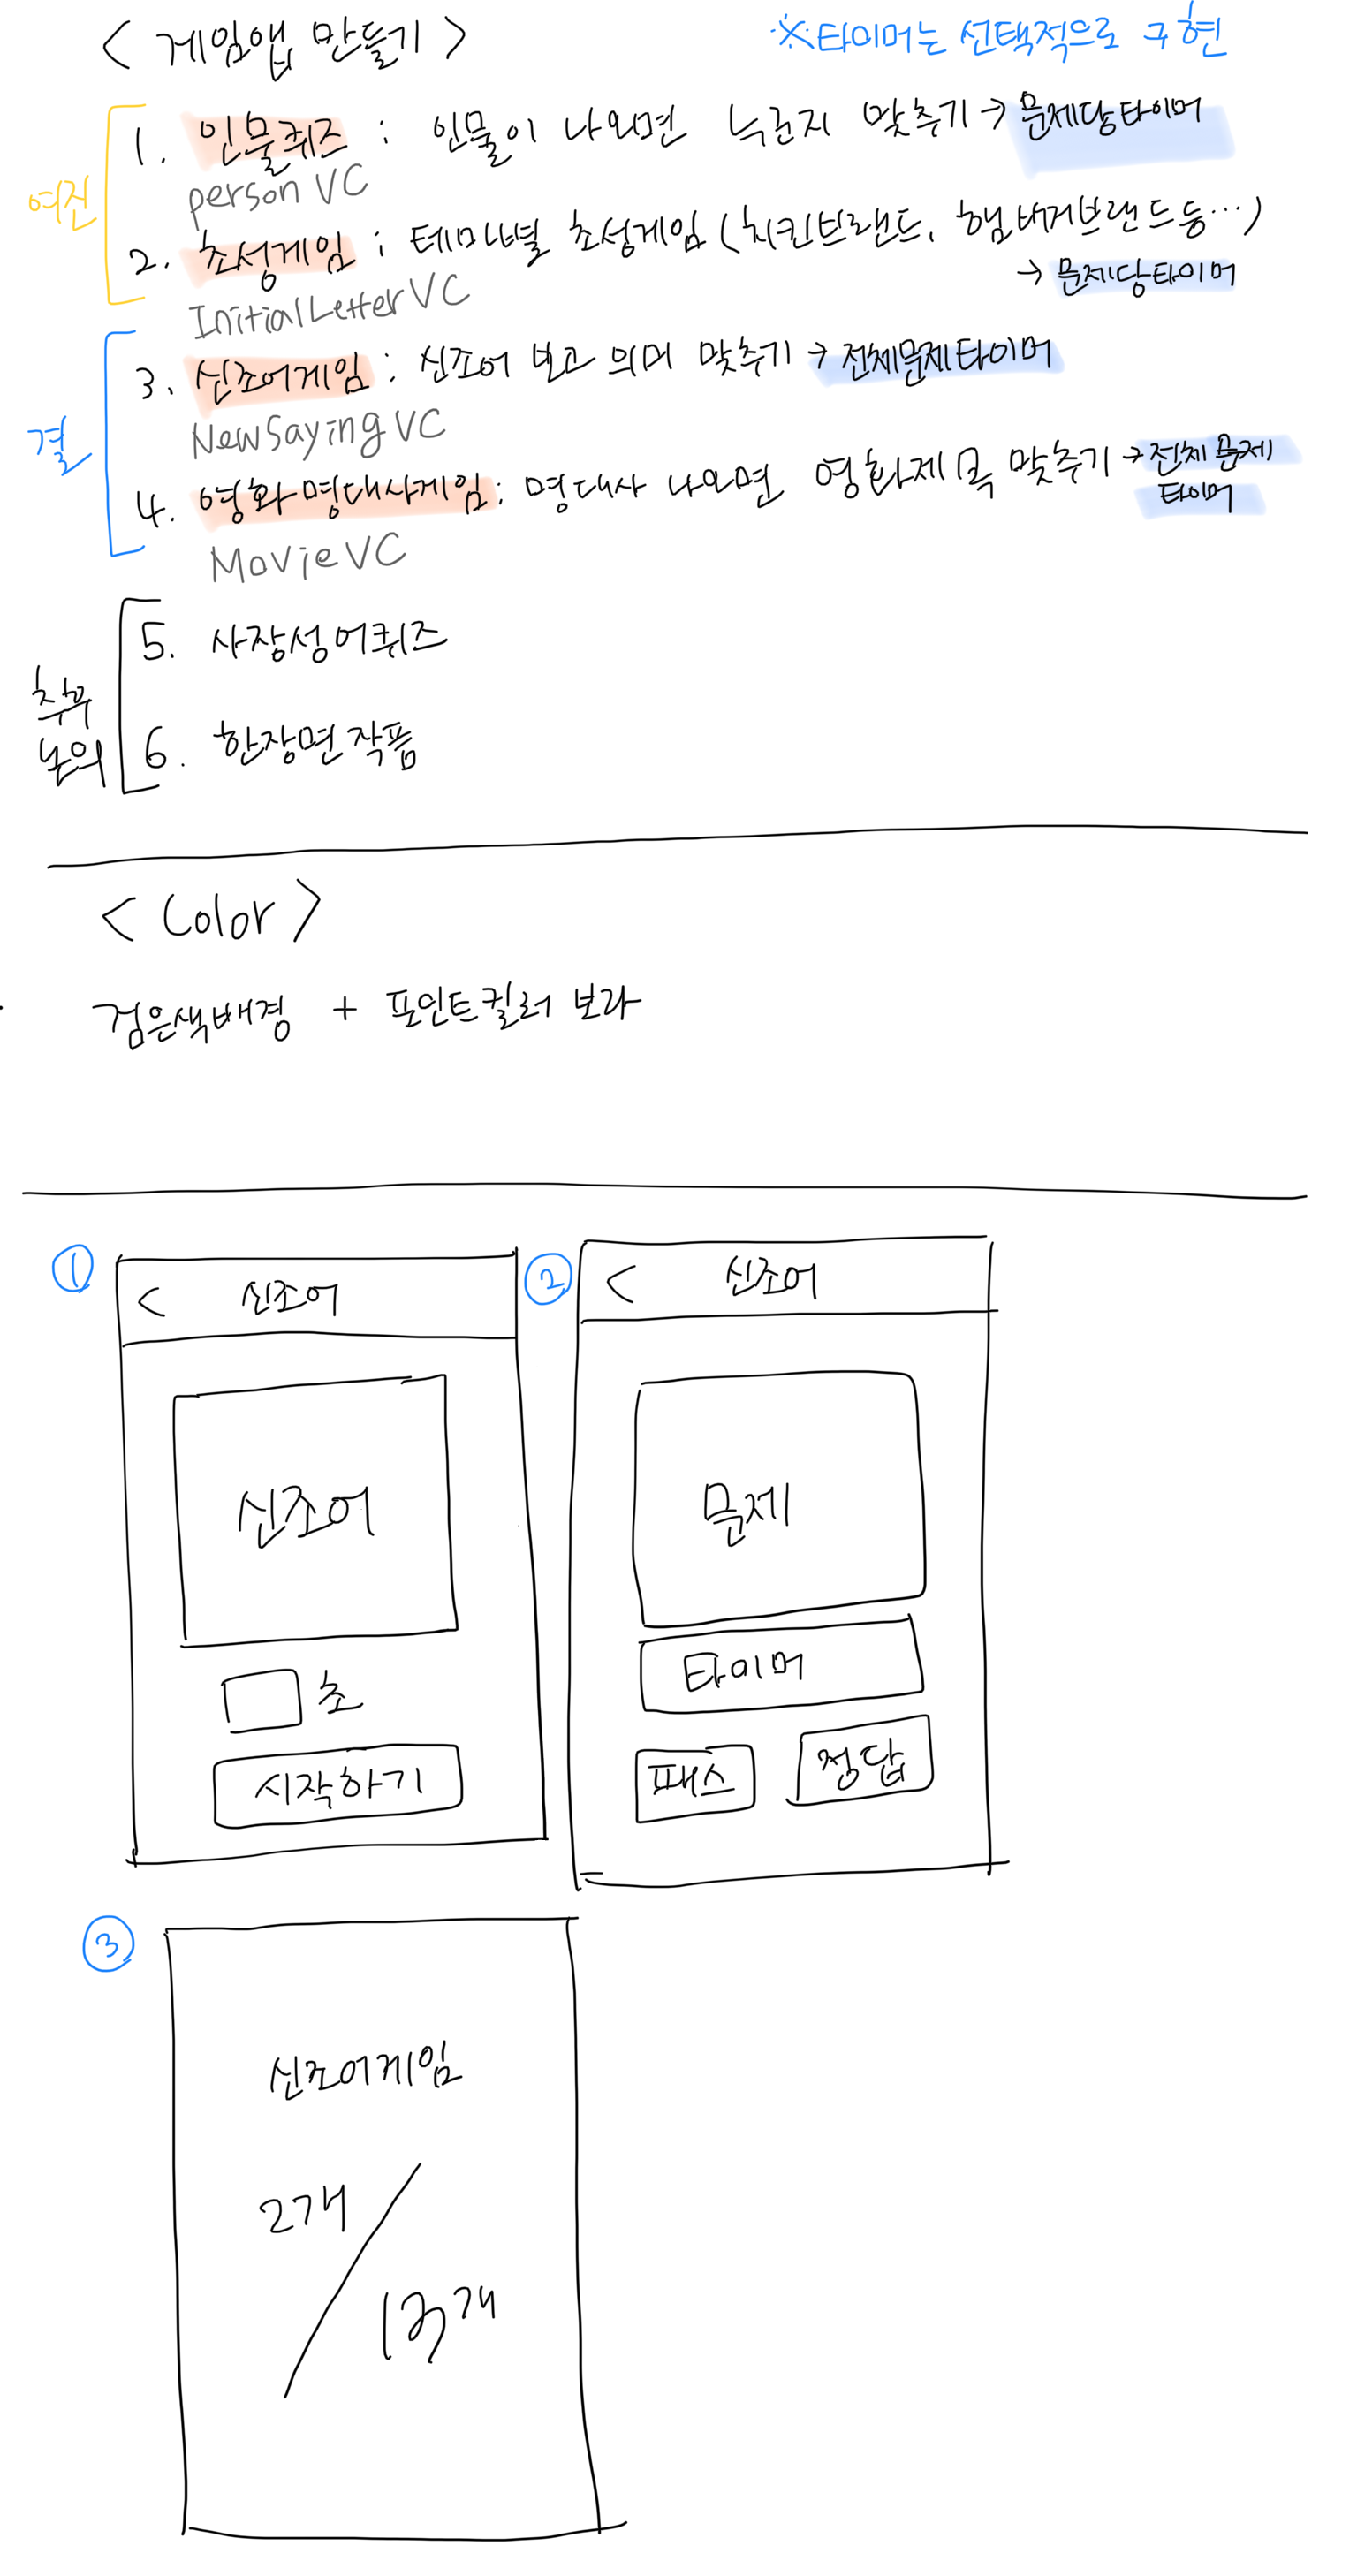 < 게임앱 만들기 >
※타이머는 선택적으로 구현
여진
1. 인물퀴즈 : 인물이 나오면 누군지 맞추기 → 문제당타이머
person VC
2. 초성게임 : 테마별 초성게임 (치킨브랜드, 햄버거브랜드 등…)
→ 문제당타이머
InitialLetter VC
결
3. 신조어게임 : 신조어 보고 의미 맞추기 → 전체문제타이머
NewSaying VC
4. 영화명대사게임 : 명대사 나오면 영화제목 맞추기 → 전체 문제
타이머
Movie VC
추후
논의
5. 사장성어퀴즈
6. 한장면작품
< Color >
검은색배경 + 포인트컬러 보라
①
< 신조어
신조어
초
시작하기
②
< 신조어
문제
타이머
패스 정답
③
신조어게임
2개
개